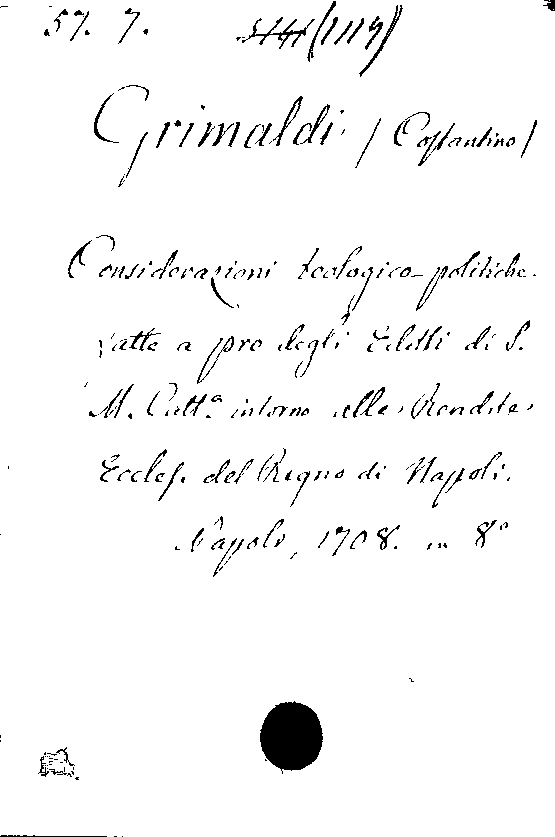 57. 7. (1119)
Grimaldi / Costantino /
Considerazioni teologico-politiche
fatte a pro degli Editti di S.
M. Catt.a intorno alle Rendite
Eccles. del Regno di Napoli.
Napoli, 1708. in 8°